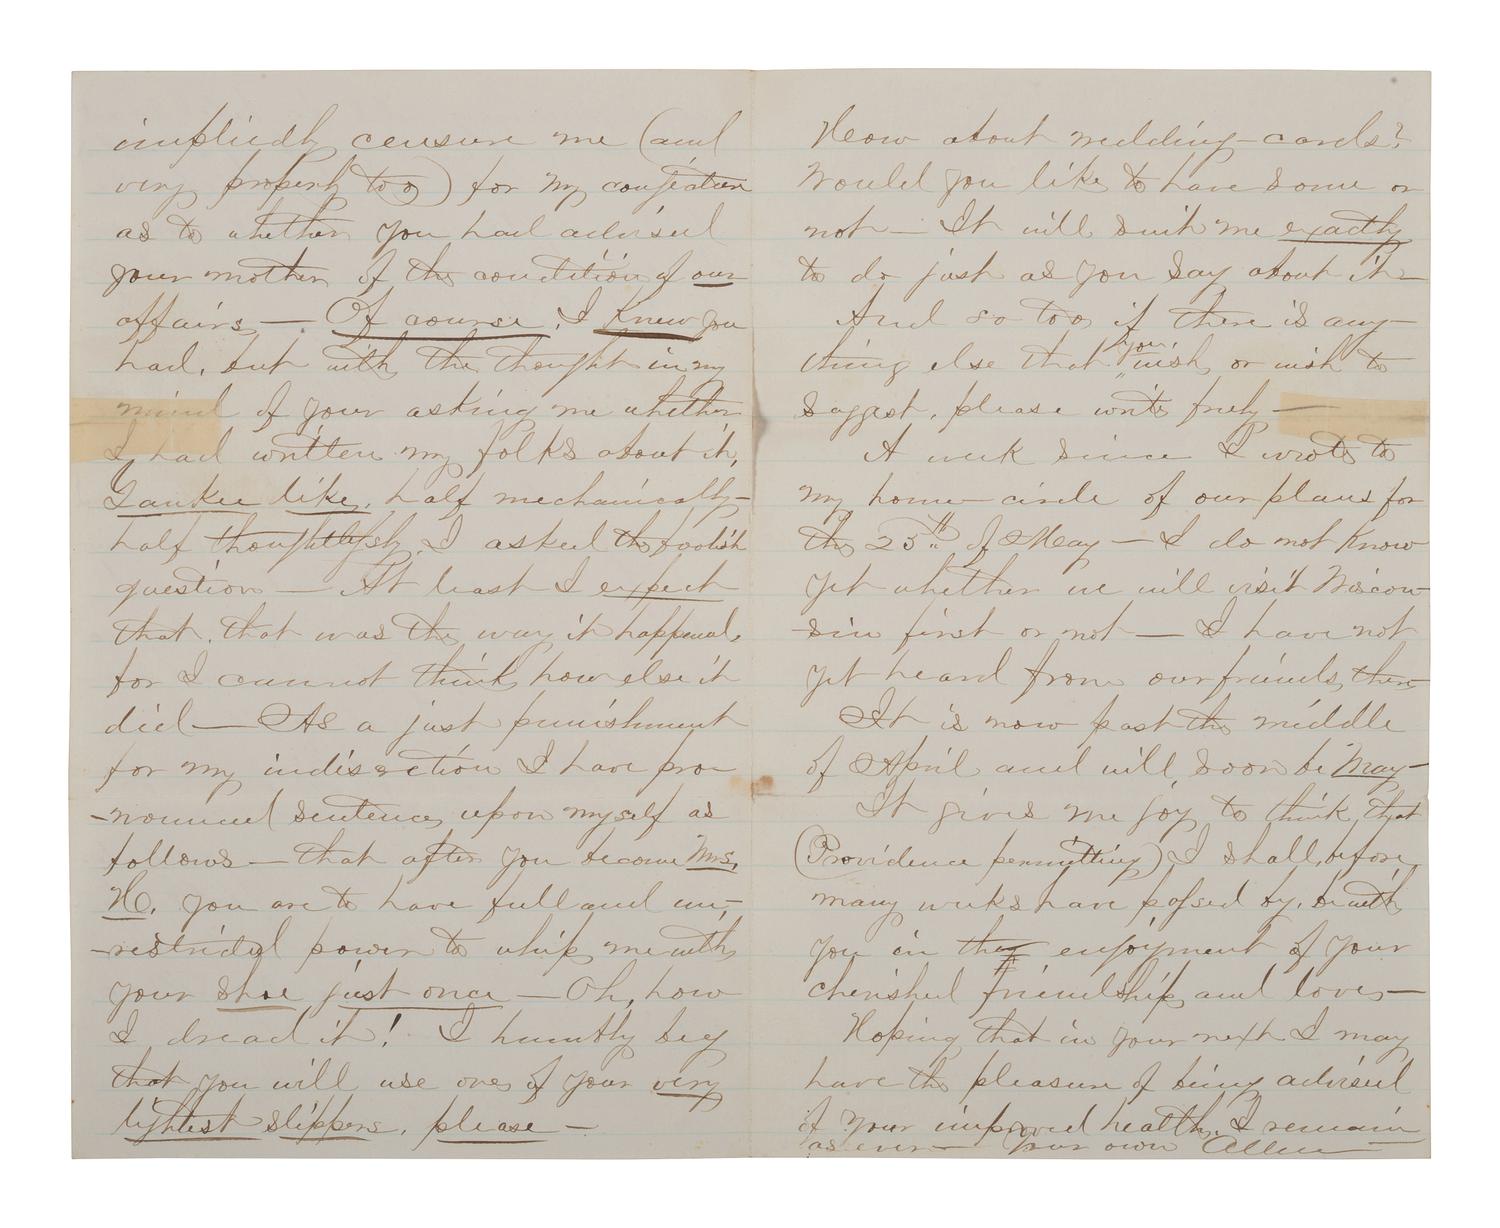 impliedly censure me (and
very properly too) for my conjecture
as to whether you had advised
your mother of the condition of our
affairs — Of course, I knew you
had, but with the thought in my
mind of your asking me whether
I had written my folks about it,
Yankee like, half mechanically—
half thoughtlessly, I asked the foolish
question — At least I expect
that, that was the way it happened,
for I cannot think how else it
did — As a just punishment
for my indiscretion I have pro-
-nounced sentence upon myself as
follows — that after you become Mrs.
H. you are to have full and un-
-restricted power to whip me with
your shoe just once — Oh, how
I dread it! I humbly beg
that you will use one of your very
lightest slippers, please —
How about wedding-cards?
Would you like to have some or
not — It will suit me exactly
to do just as you say about it—
And so too, if there is any-
thing else that you wish, or wish to
suggest, please write freely —
A week since I wrote to
my home-circle of our plans for
the 25th of May — I do not know
yet whether we will visit Wiscon-
sin first or not — I have not
yet heard from our friends there
It is now past the middle
of April and will soon be May—
It gives me joy to think that
(Providence permitting) I shall, before
many weeks have passed by, be with
you in the enjoyment of your
cherished friendship and love, —
Hoping that in your next I may
have the pleasure of being advised
of your improved health, I remain
as ever — Your own Allen —